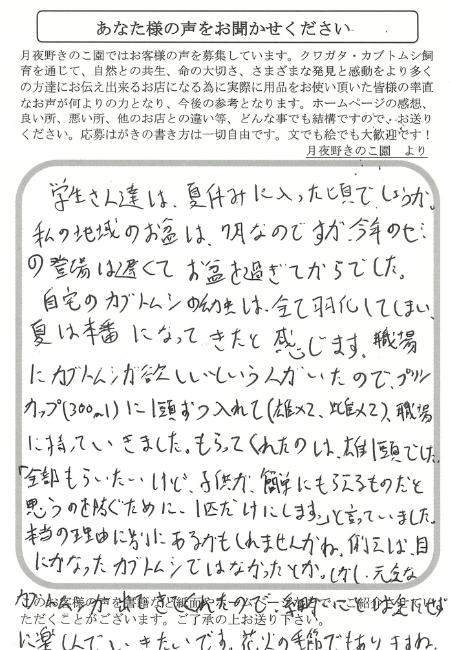 あなた様の声をお聞かせください
月夜野きのこ園ではお客様の声を募集しています。クワガタ・カブトムシ飼
育を通じて、自然との共生、命の大切さ、さまざまな発見と感動をより多く
の方達にお伝え出来るお店になる為に実際に用品をお使い頂いた皆様の率直
なお声が何よりの力となり、今後の参考となります。ホームページの感想、
良い所、悪い所、他のお店との違い等、どんな事でも結構ですので、お送り
ください。応募はがきの書き方は一切自由です。文でも絵でも大歓迎です！
月夜野きのこ園　より
学生さん達は、夏休みに入った頃でしょうか。
私の地域のお盆は、7月なのですが今年のセミ
の登場は遅くてお盆を過ぎてからでした。
自宅のカブトムシの幼虫は、全て羽化してしまい、
夏は本番になってきたと感じます。職場
にカブトムシが欲しいという人がいたので、プリン
カップ(300ml)に1頭ずつ入れて(雄×2、雌×2)、職場
に持っていきました。もらってくれたのは、雄1頭でした。
「全部もらいたいけど、子供が、簡単にもらえるものだと
思うのを防ぐために、1匹だけにします。」と言っていました。
本当の理由は別にあるかもしれませんがね。例えば、目
にかなったカブトムシではなかったとか。しかし、元気な
カブトムシが出てきてくれたので、
ただくことがございます。ご了承の上お送り下さい。
に楽しんでいきたいです。花火の季節でもありますね。